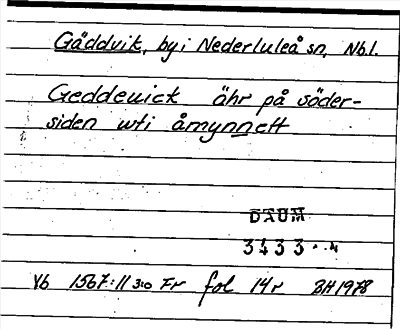 Gäddvik, by i Nederluleå sn, Nb.l.
Geddeuick ähr på söder-
siden wti åmynnett
DAUM
3433
Vb 1567:11 3:0 Fr fol 14r BH 1978